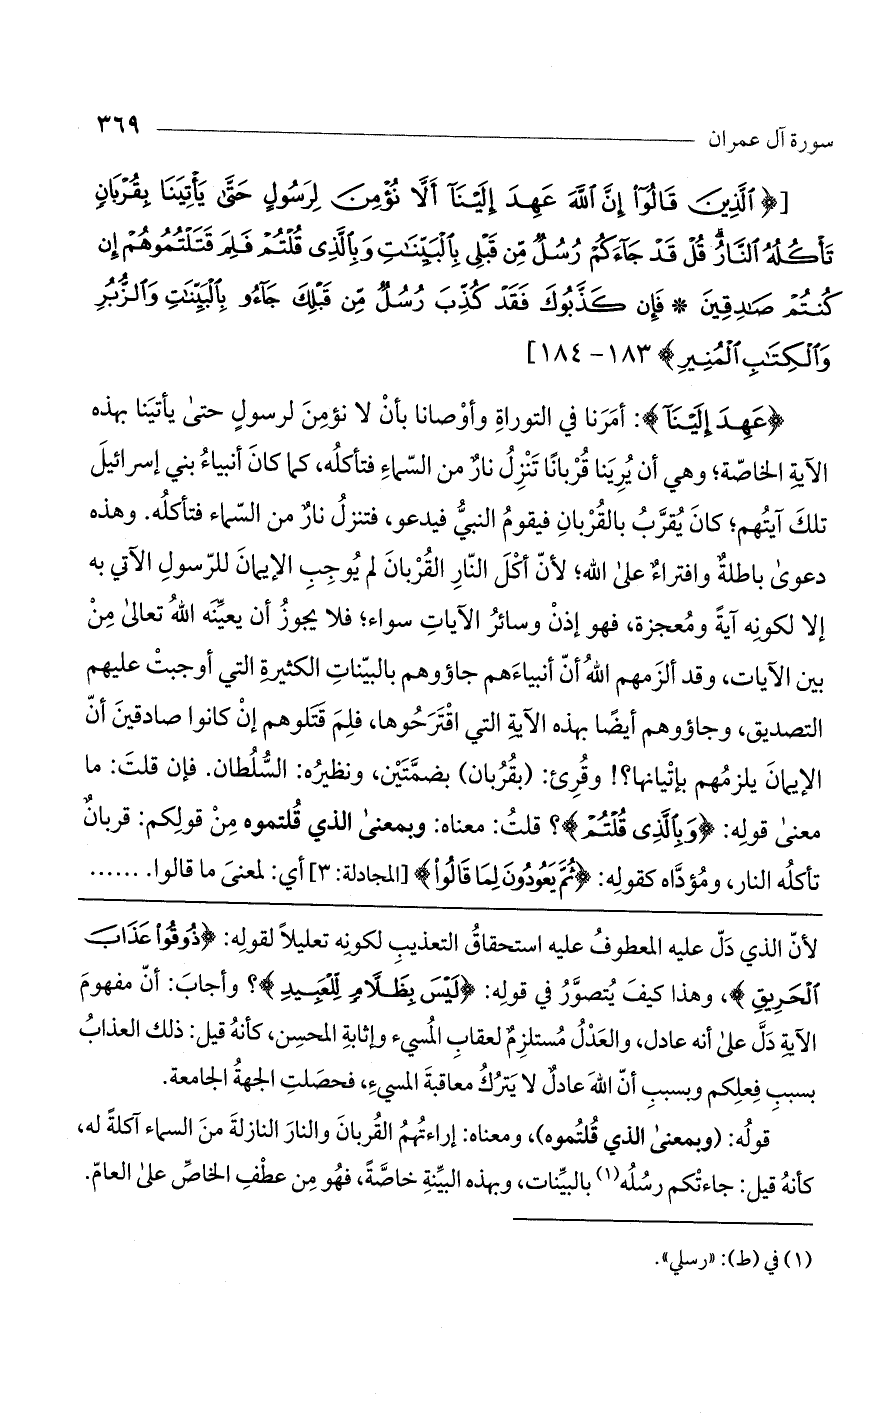 سورة آل عمران ٣٦٩
[﴿ ٱلَّذِينَ قَالُوٓا۟ إِنَّ ٱللَّهَ عَهِدَ إِلَيْنَآ أَلَّا نُؤْمِنَ لِرَسُولٍ حَتَّىٰ يَأْتِيَنَا بِقُرْبَانٍ
تَأْكُلُهُ ٱلنَّارُ ۗ قُلْ قَدْ جَآءَكُمْ رُسُلٌ مِّن قَبْلِى بِٱلْبَيِّنَٰتِ وَبِٱلَّذِى قُلْتُمْ فَلِمَ قَتَلْتُمُوهُمْ إِن
كُنتُمْ صَٰدِقِينَ * فَإِن كَذَّبُوكَ فَقَدْ كُذِّبَ رُسُلٌ مِّن قَبْلِكَ جَآءُو بِٱلْبَيِّنَٰتِ وَٱلزُّبُرِ
وَٱلْكِتَٰبِ ٱلْمُنِيرِ ﴾ ١٨٣ - ١٨٤]
﴿عَهِدَ إِلَيْنَآ﴾: أمَرَنا في التوراةِ وأوْصانا بأنْ لا نؤمِنَ لرسولٍ حتىٰ يأتيَنا بهذه
الآيةِ الخاصّة؛ وهي أن يُرِيَنا قُرْبانًا تَنْزِلُ نارٌ من السّماءِ فتأكلُه، كما كانَ أنبياءُ بني إسرائيلَ
تلكَ آيتُهم؛ كانَ يُقرَّبُ بالقُرْبانِ فيقومُ النبيُّ فيدعو، فتنزلُ نارٌ من السّماء فتأكلُه. وهذه
دعوىٰ باطلةٌ وافتراءٌ علىٰ الله؛ لأنّ أكْلَ النّارِ القُرْبانَ لم يُوجِبِ الإيمانَ للرّسولِ الآتي به
إلا لكونِه آيةً ومُعجزة، فهو إذنْ وسائرُ الآياتِ سواء؛ فلا يجوزُ أن يعيِّنَه اللهُ تعالىٰ مِنْ
بين الآيات، وقد ألزَمهم اللهُ أنّ أنبياءَهم جاؤوهم بالبيّناتِ الكثيرةِ التي أوجبتْ عليهم
التصديق، وجاؤوهم أيضًا بهذه الآيةِ التي اقْتَرَحُوها، فلِمَ قَتَلوهم إنْ كانوا صادقينَ أنّ
الإيمانَ يلزمُهم بإتْيانها؟! وقُرِئ: (بقُرُبان) بضمَّتَيْن، ونظيرُه: السُّلُطان. فإن قلتَ: ما
معنىٰ قولِه: ﴿وَبِٱلَّذِى قُلْتُمْ﴾؟ قلتُ: معناه: وبمعنىٰ الذي قُلتموه مِنْ قولِكم: قربانٌ
تأكلُه النار، ومُؤدَّاه كقولِه: ﴿ثُمَّ يَعُودُونَ لِمَا قَالُوا۟﴾ [المجادلة: ٣] أي: لمعنىَ ما قالوا. ......
لأنّ الذي دَلّ عليه المعطوفُ عليه استحقاقُ التعذيبِ لكونِه تعليلاً لقولِه: ﴿ذُوقُوا۟ عَذَابَ
ٱلْحَرِيقِ ﴾، وهذا كيفَ يُتصوَّرُ في قولِه: ﴿لَيْسَ بِظَلَّامٍ لِّلْعَبِيدِ ﴾؟ وأجابَ: أنّ مفهومَ
الآيةِ دَلَّ علىٰ أنه عادل، والعَدْلُ مُستلزِمٌ لعقابِ المُسيء وإثابةِ المحسِن، كأنهُ قيل: ذلك العذابُ
بسببِ فِعلِكم وبسببِ أنّ اللهَ عادلٌ لا يَترُكُ معاقبةَ المسيءِ، فحصَلتِ الجهةُ الجامعة.
قولُه: (وبمعنىٰ الذي قُلتُموه)، ومعناه: إراءتُهمُ القُربانَ والنارَ النازلةَ منَ السماء آكلةً له،
كأنهُ قيل: جاءتْكم رسُلُه(١) بالبيِّنات، وبهذه البيِّنةِ خاصَّةً، فهُو مِن عطْفِ الخاصِّ علىٰ العامّ.
(١) في (ط): «رسلي».